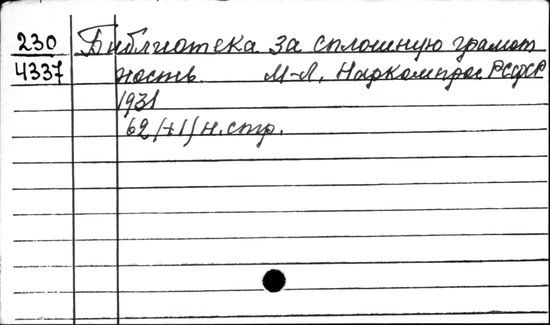 230 Библиотека за сплошную грамот
4337 ность. М-Л, Наркомпрос РСФСР
1931
62 (+1) н. стр.